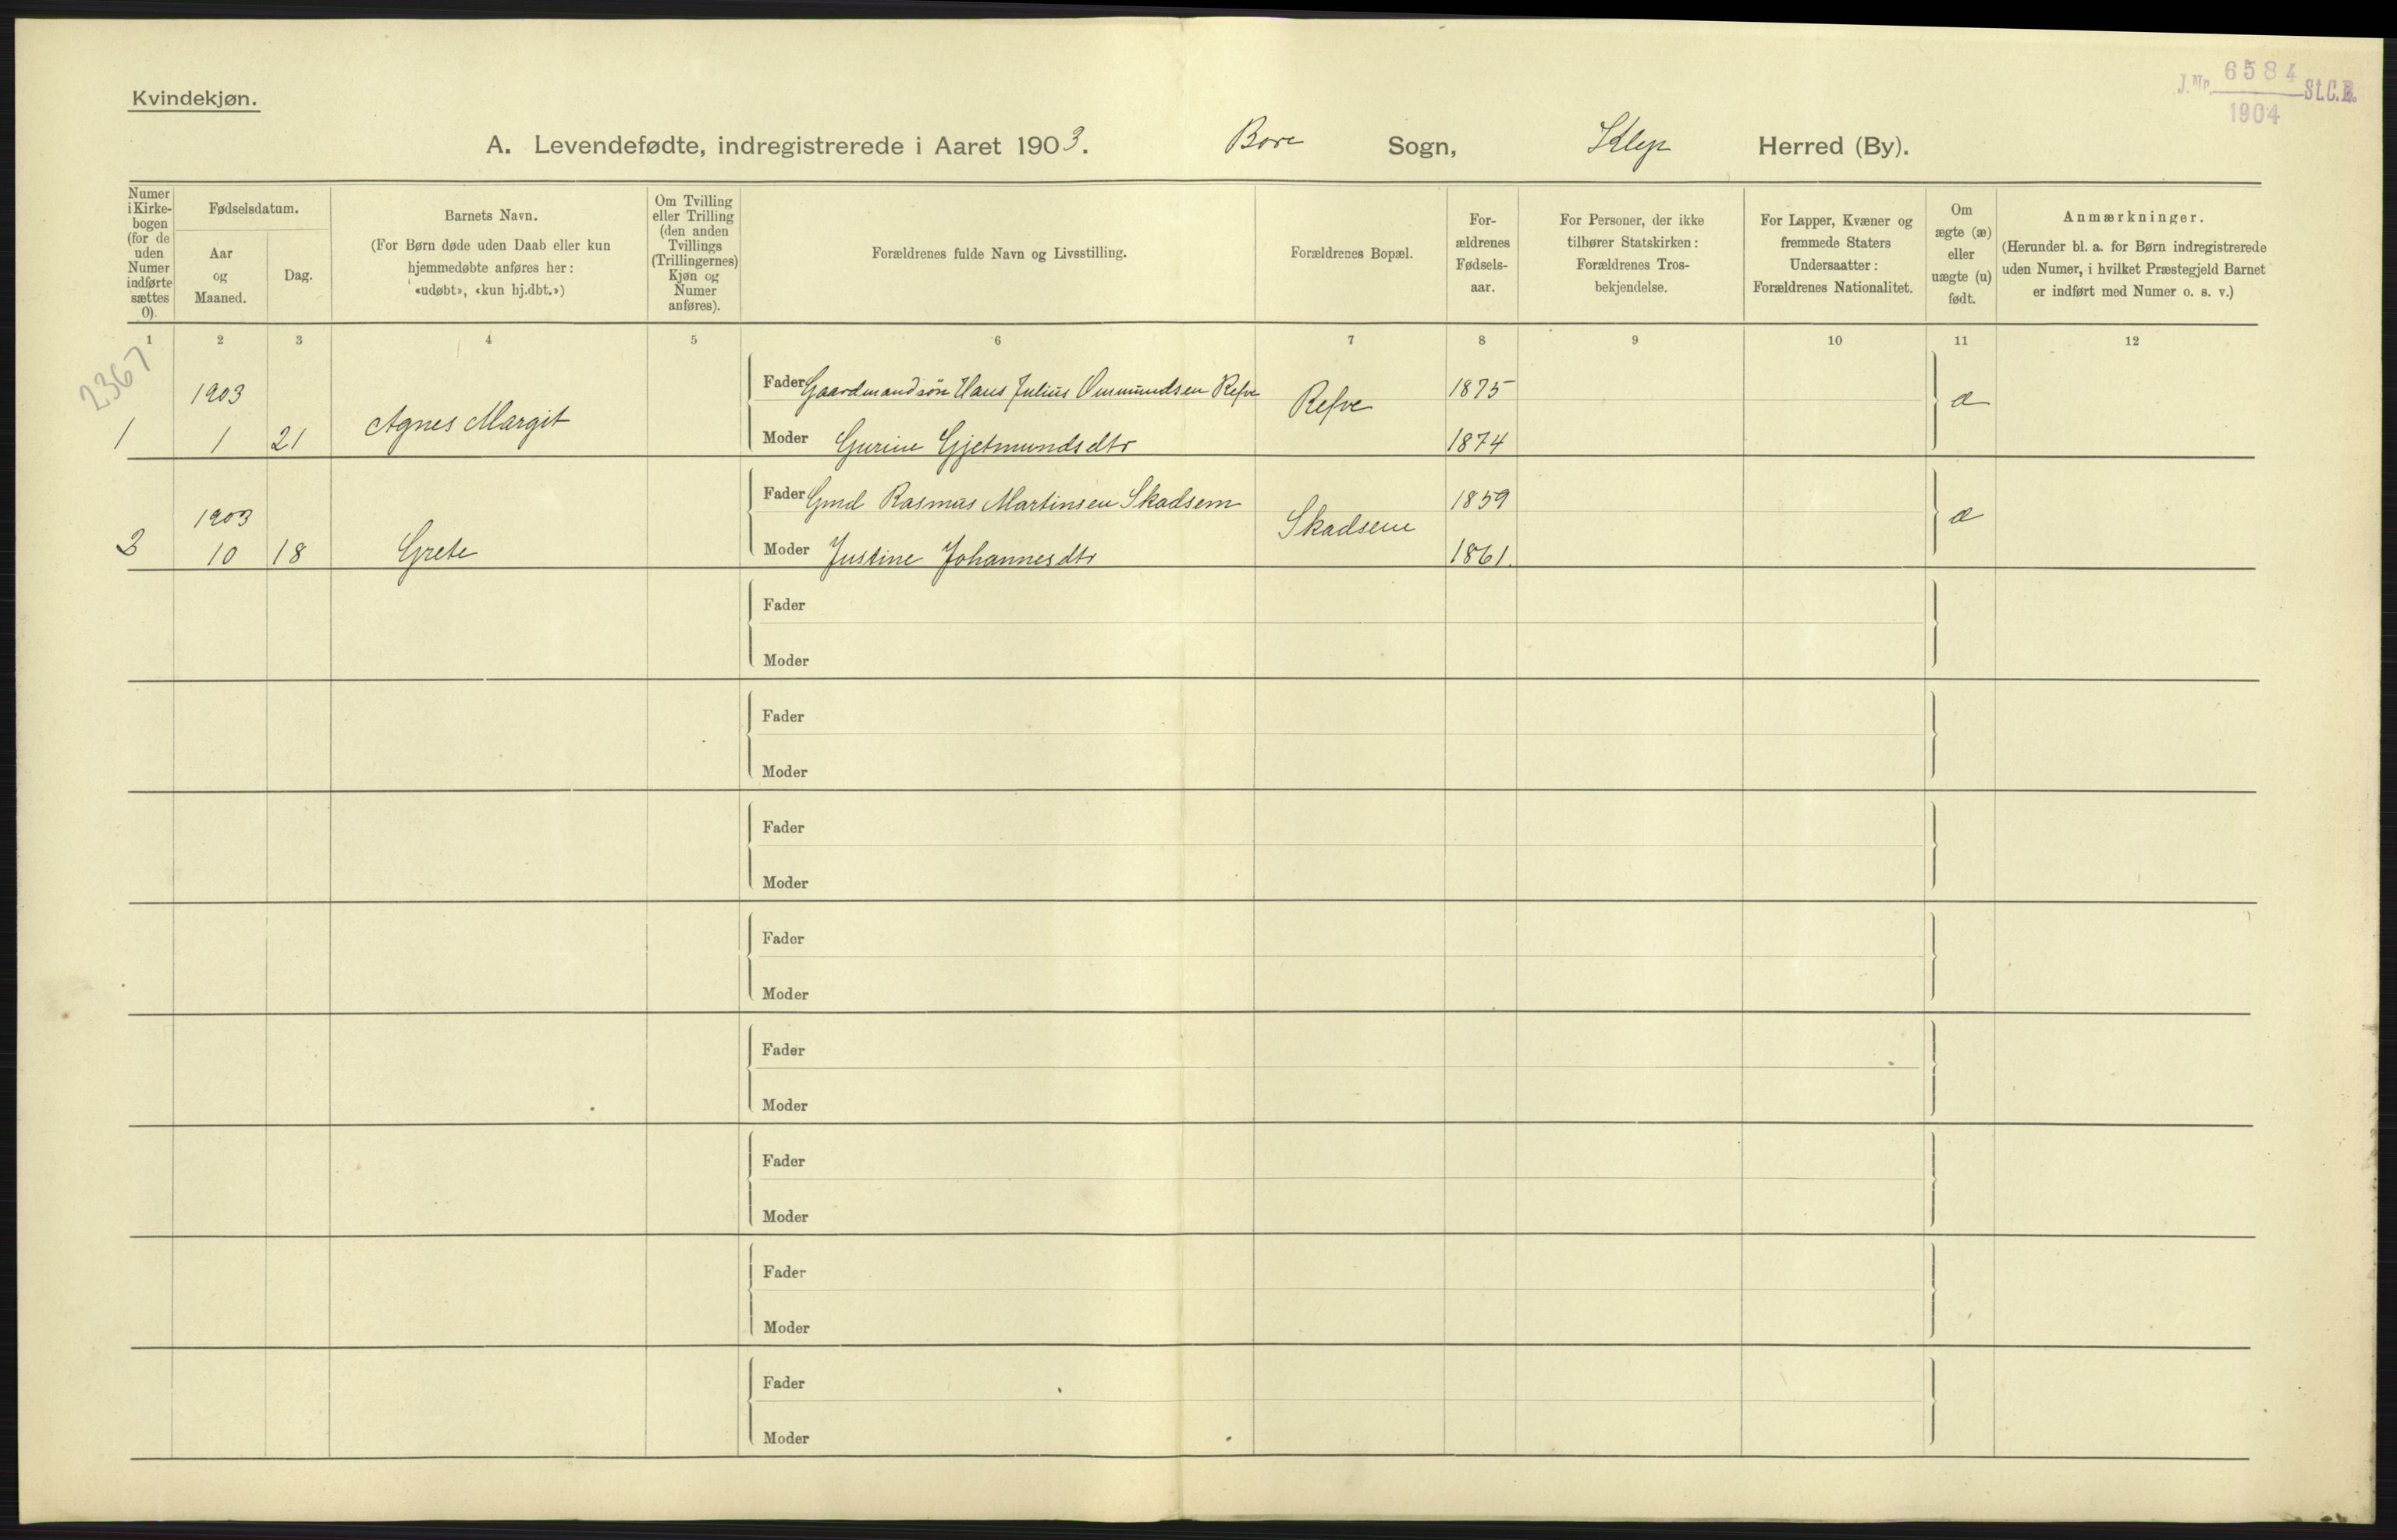 Kvindekjøn.
J. Nr. 6584 St.C.B.
1904
A. Levendefødte, indregistrerede i Aaret 1903. Bore Sogn, Klep Herred (By).
Numer i Kirkebogen (for de uden Numer indførte sættes 0).
Fødselsdatum.
Aar og Maaned.
Dag.
Barnets Navn.
(For Børn døde uden Daab eller kun
hjemmedøbte anføres her:
«udøbt», «kun hj.dbt.»)
Om Tvilling
eller Trilling
(den anden
Tvillings
(Trillingernes)
Kjøn og
Numer
anføres).
Forældrenes fulde Navn og Livsstilling.
Forældrenes Bopæl.
For-
ældrenes
Fødsels-
aar.
For Personer, der ikke
tilhører Statskirken:
Forældrenes Tros-
bekjendelse.
For Lapper, Kvæner og
fremmede Staters
Undersaatter:
Forældrenes Nationalitet.
Om
ægte (æ)
eller
uægte (u)
født.
Anmærkninger.
(Herunder bl. a. for Børn indregistrerede
uden Numer, i hvilket Præstegjeld Barnet
er indført med Numer o. s. v.)
1 2 3 4 5 6 7 8 9 10 11 12
2367
1903 Fader Gaardmandsøn Hans Julius Ommundsen Refve Refve 1875 æ
1 1 21 Agnes Margit Moder Gurine Gjetmundsdtr 1874
1903 Fader Gmd Rasmus Martinsen Skadsem Skadsem 1859 æ
2 10 18 Grete Moder Justine Johannesdtr 1861.
Fader
Moder
Fader
Moder
Fader
Moder
Fader
Moder
Fader
Moder
Fader
Moder
Fader
Moder
Fader
Moder